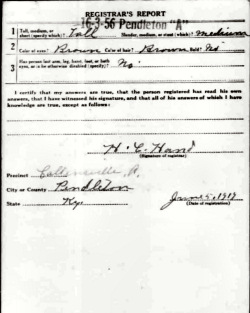 REGISTRAR'S REPORT
16-3-56 Pendleton "A"
1 Tall, medium, or short (specify which)? Tall Slender, medium, or stout (which)? medium
2 Color of eyes? Brown Color of hair? Brown Bald? No
3 Has person lost arm, leg, hand, foot, or both eyes, or is he otherwise disabled (specify)? No
I certify that my answers are true, that the person registered has read his own
answers, that I have witnessed his signature, and that all of his answers of which I have
knowledge are true, except as follows:
H. C. Hand
(Signature of registrar)
Precinct
City or County Pendleton
State Ky.
June 5, 1917
(Date of registration)